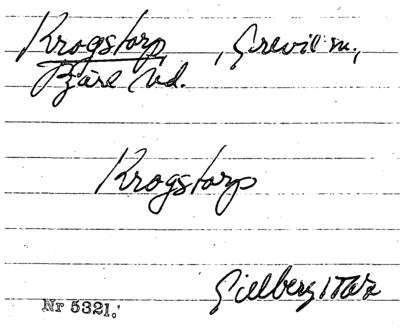 Krogstorp, , Grevie sn.,
Bjäre hd.
Krogstorp
Gillberg 1702
Nr 5321.